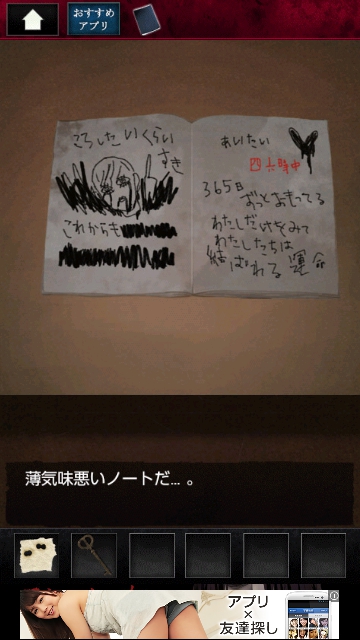 おすすめ
アプリ
ころしたいくらい
すき
これからも
あいたい
四六時中
365日
ずっとおもってる
わたしだけをみて
わたしたちは
結ばれる運命
薄気味悪いノートだ…。
アプリ
×
友達探し